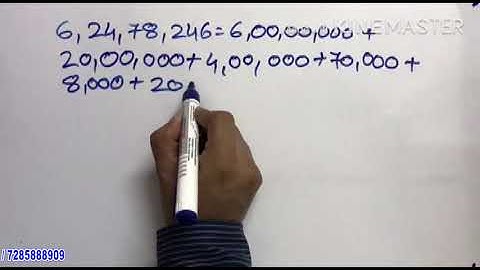 KINEMASTER
6,24,78,246=6,00,00,000+
20,00,000+4,00,000+70,000+
8,000+20
/ 7285888909